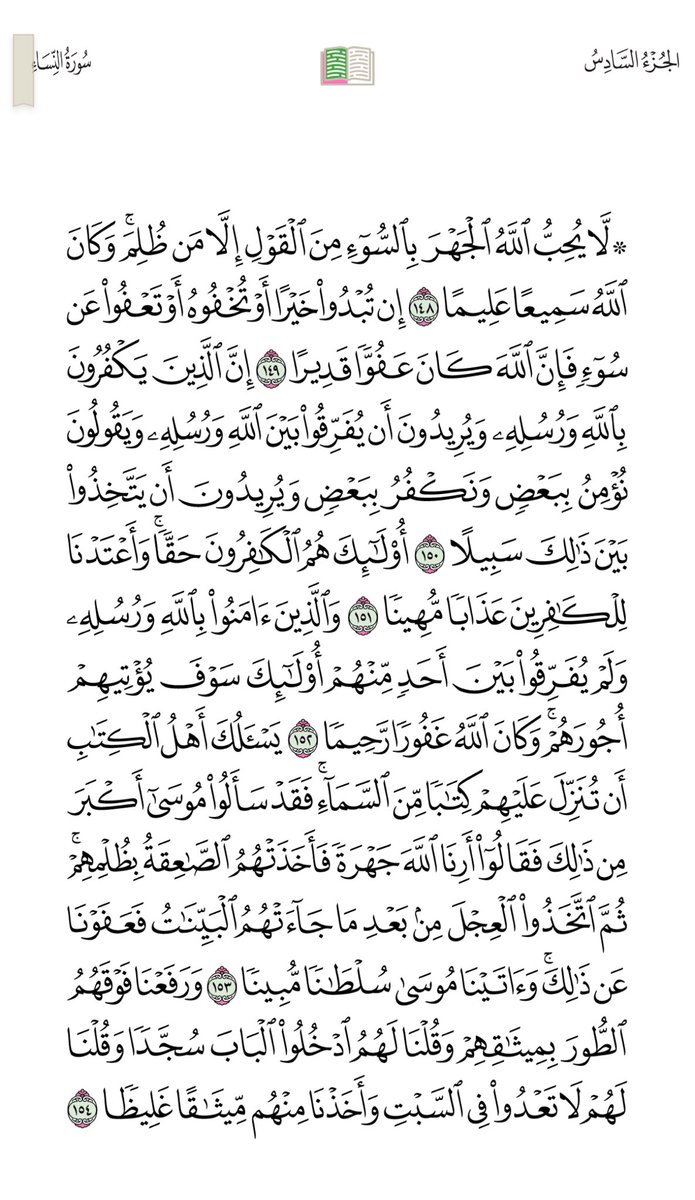 الجُزْءُ السَّادِسُ
سُورَةُ النِّسَاءِ
۞ لَّا يُحِبُّ ٱللَّهُ ٱلْجَهْرَ بِٱلسُّوٓءِ مِنَ ٱلْقَوْلِ إِلَّا مَن ظُلِمَۚ وَكَانَ
ٱللَّهُ سَمِيعًا عَلِيمًا ١٤٨ إِن تُبْدُوا۟ خَيْرًا أَوْ تُخْفُوهُ أَوْ تَعْفُوا۟ عَن
سُوٓءٍ فَإِنَّ ٱللَّهَ كَانَ عَفُوًّا قَدِيرًا ١٤٩ إِنَّ ٱلَّذِينَ يَكْفُرُونَ
بِٱللَّهِ وَرُسُلِهِۦ وَيُرِيدُونَ أَن يُفَرِّقُوا۟ بَيْنَ ٱللَّهِ وَرُسُلِهِۦ وَيَقُولُونَ
نُؤْمِنُ بِبَعْضٍ وَنَكْفُرُ بِبَعْضٍ وَيُرِيدُونَ أَن يَتَّخِذُوا۟
بَيْنَ ذَٰلِكَ سَبِيلًا ١٥٠ أُو۟لَٰٓئِكَ هُمُ ٱلْكَٰفِرُونَ حَقًّاۚ وَأَعْتَدْنَا
لِلْكَٰفِرِينَ عَذَابًا مُّهِينًا ١٥١ وَٱلَّذِينَ ءَامَنُوا۟ بِٱللَّهِ وَرُسُلِهِۦ
وَلَمْ يُفَرِّقُوا۟ بَيْنَ أَحَدٍ مِّنْهُمْ أُو۟لَٰٓئِكَ سَوْفَ يُؤْتِيهِمْ
أُجُورَهُمْۚ وَكَانَ ٱللَّهُ غَفُورًا رَّحِيمًا ١٥٢ يَسْـَٔلُكَ أَهْلُ ٱلْكِتَٰبِ
أَن تُنَزِّلَ عَلَيْهِمْ كِتَٰبًا مِّنَ ٱلسَّمَآءِۚ فَقَدْ سَأَلُوا۟ مُوسَىٰٓ أَكْبَرَ
مِن ذَٰلِكَ فَقَالُوٓا۟ أَرِنَا ٱللَّهَ جَهْرَةً فَأَخَذَتْهُمُ ٱلصَّٰعِقَةُ بِظُلْمِهِمْۚ
ثُمَّ ٱتَّخَذُوا۟ ٱلْعِجْلَ مِنۢ بَعْدِ مَا جَآءَتْهُمُ ٱلْبَيِّنَٰتُ فَعَفَوْنَا
عَن ذَٰلِكَۚ وَءَاتَيْنَا مُوسَىٰ سُلْطَٰنًا مُّبِينًا ١٥٣ وَرَفَعْنَا فَوْقَهُمُ
ٱلطُّورَ بِمِيثَٰقِهِمْ وَقُلْنَا لَهُمُ ٱدْخُلُوا۟ ٱلْبَابَ سُجَّدًا وَقُلْنَا
لَهُمْ لَا تَعْدُوا۟ فِى ٱلسَّبْتِ وَأَخَذْنَا مِنْهُم مِّيثَٰقًا غَلِيظًا ١٥٤